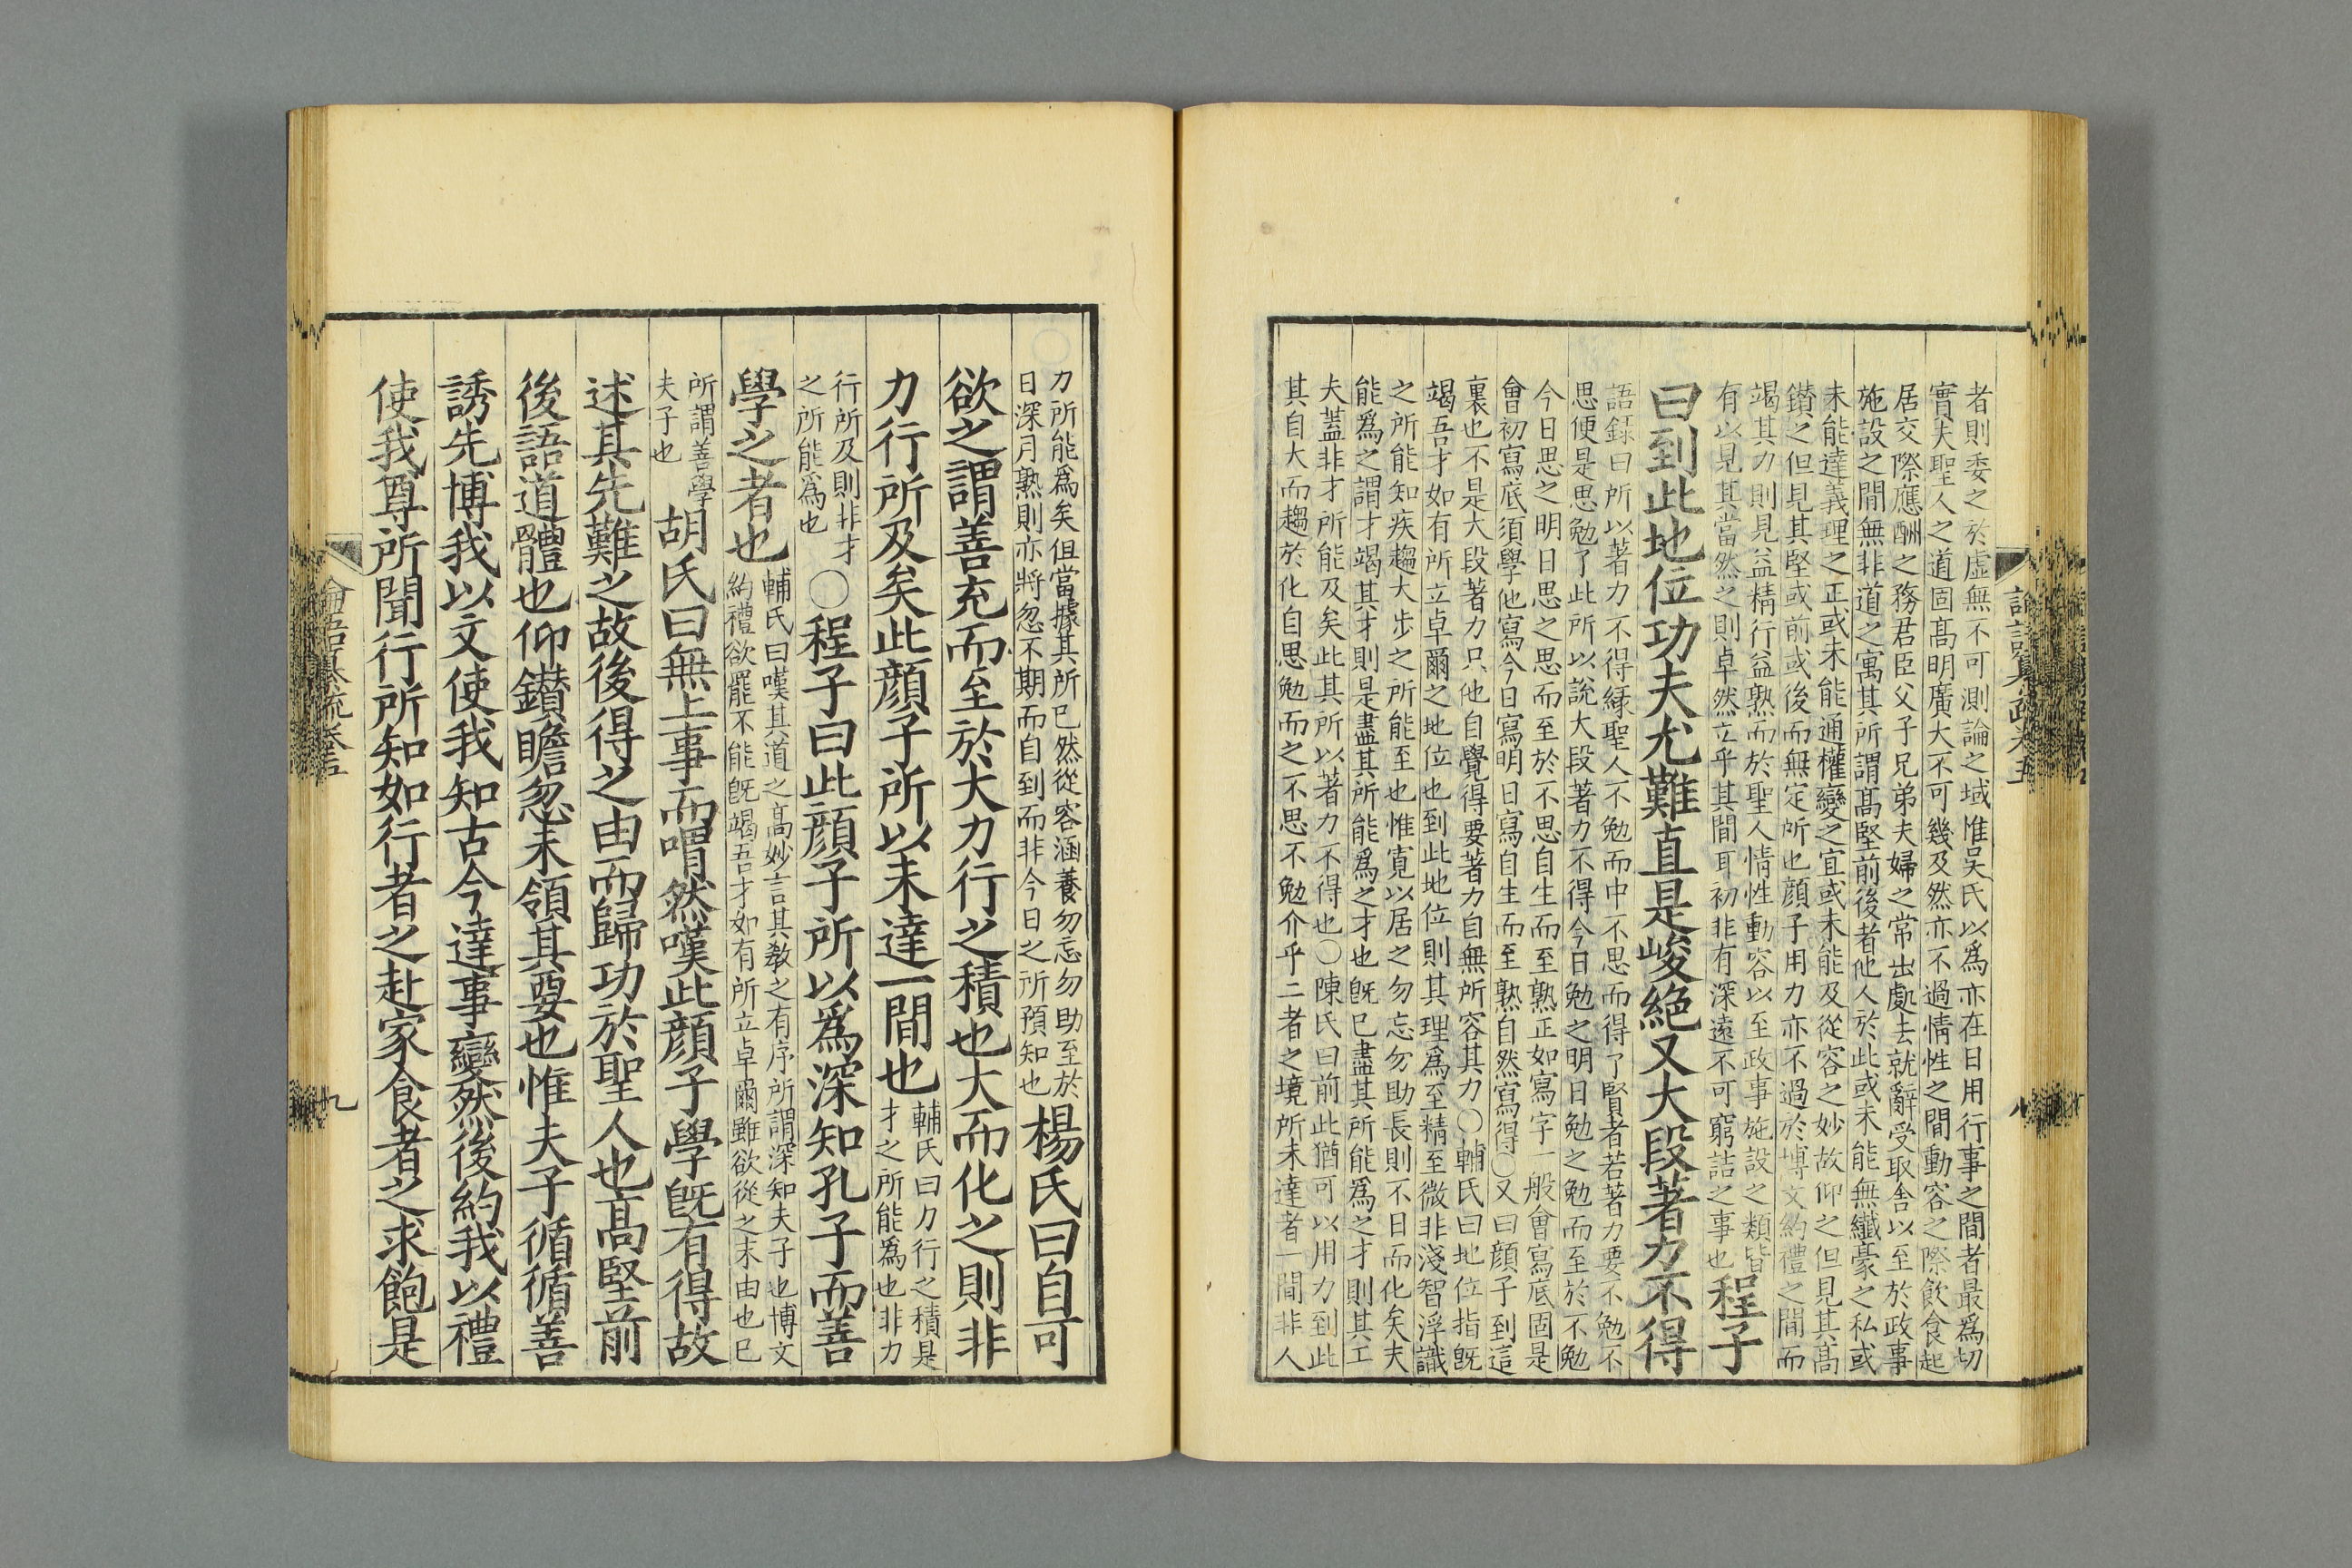 者則委之於虛無不可測論之域惟吳氏以爲亦在日用行事之間者最爲切
實夫聖人之道固髙明廣大不可幾及然亦不過情性之間動容之際飲食起
居交際應酬之務君臣父子兄弟夫婦之常出處去就辭受取舍以至於政事
施設之間無非道之寓其所謂髙堅前後者他人於此或未能無纎豪之私或
未能達義理之正或未能通權變之宜或未能及從容之妙故仰之但見其髙
鑚之但見其堅或前或後而無定所也顔子用力亦不過於博文約禮之間而
竭其力則見益精行益熟而於聖人情性動容以至政事施設之類皆
有以見其當然之則卓然立乎其間耳初非有深遠不可窮詰之事也程子
曰到此地位功夫尤難直是峻絶又大段著力不得
語録曰所以著力不得縁聖人不勉而中不思而得了賢者若著力要不勉不
思便是思勉了此所以說大段著力不得今日勉之明日勉之勉而至於不勉
今日思之明日思之思而至於不思自生而至熟正如寫字一般會寫底固是
會初寫底須學他寫今日寫明日寫自生而至熟自然寫得○又曰顔子到這
裏也不是大段著力只他自覺得要著力自無所容其力○輔氏曰地位指旣
竭吾才如有所立卓爾之地位也到此地位則其理爲至精至微非淺智浮識
之所能知疾趨大步之所能至也惟寛以居之勿忘勿助長則不日而化矣夫
能爲之謂才竭其才則是盡其所能爲之才也旣已盡其所能爲之才則其工
夫蓋非才所能及矣此其所以著力不得也○陳氏曰前此猶可以用力到此
其自大而趨於化自思勉而之不思不勉介乎二者之境所未達者一間非人
論語集疏卷五
八
力所能爲矣但當據其所已然從容涵養勿忘勿助至於
日深月熟則亦將忽不期而自到而非今日之所預知也楊氏曰自可
欲之謂善充而至於大力行之積也大而化之則非
力行所及矣此顔子所以未達一間也輔氏曰力行之積是
才之所能爲也非力
行所及則非才
之所能爲也○程子曰此顔子所以爲深知孔子而善
學之者也輔氏曰嘆其道之髙妙言其教之有序所謂深知夫子也博文
約禮欲罷不能旣竭吾才如有所立卓爾雖欲從之末由也已
所謂善學
夫子也胡氏曰無上事而喟然嘆此顔子學旣有得故
述其先難之故後得之由而歸功於聖人也髙堅前
後語道體也仰鑚瞻忽未領其要也惟夫子循循善
誘先博我以文使我知古今達事變然後約我以禮
使我尊所聞行所知如行者之赴家食者之求飽是
九